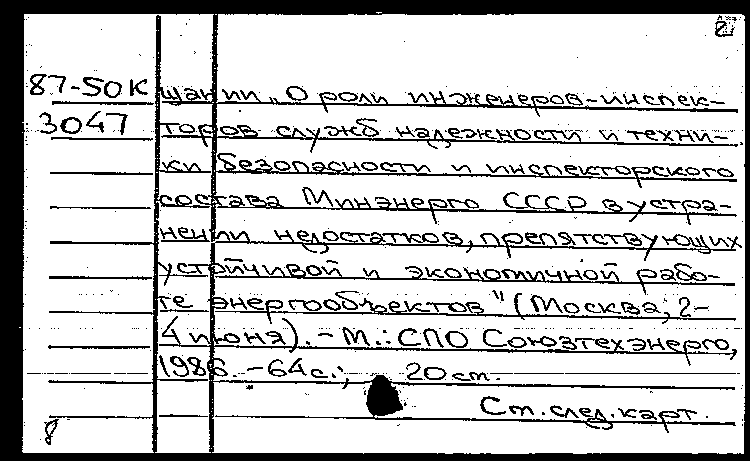 2
87-50К щании „О роли инженеров-инспек-
3047 торов служб надежности и техни-
ки безопасности и инспекторского
состава Минэнерго СССР в устра-
нении недостатков, препятствующих
устойчивой и экономичной рабо-
те энергообъектов" (Москва, 2-
4 июня). - М.: СПО Союзтехэнерго,
1986. - 64 с.; 20 см.
См. след. карт.
8